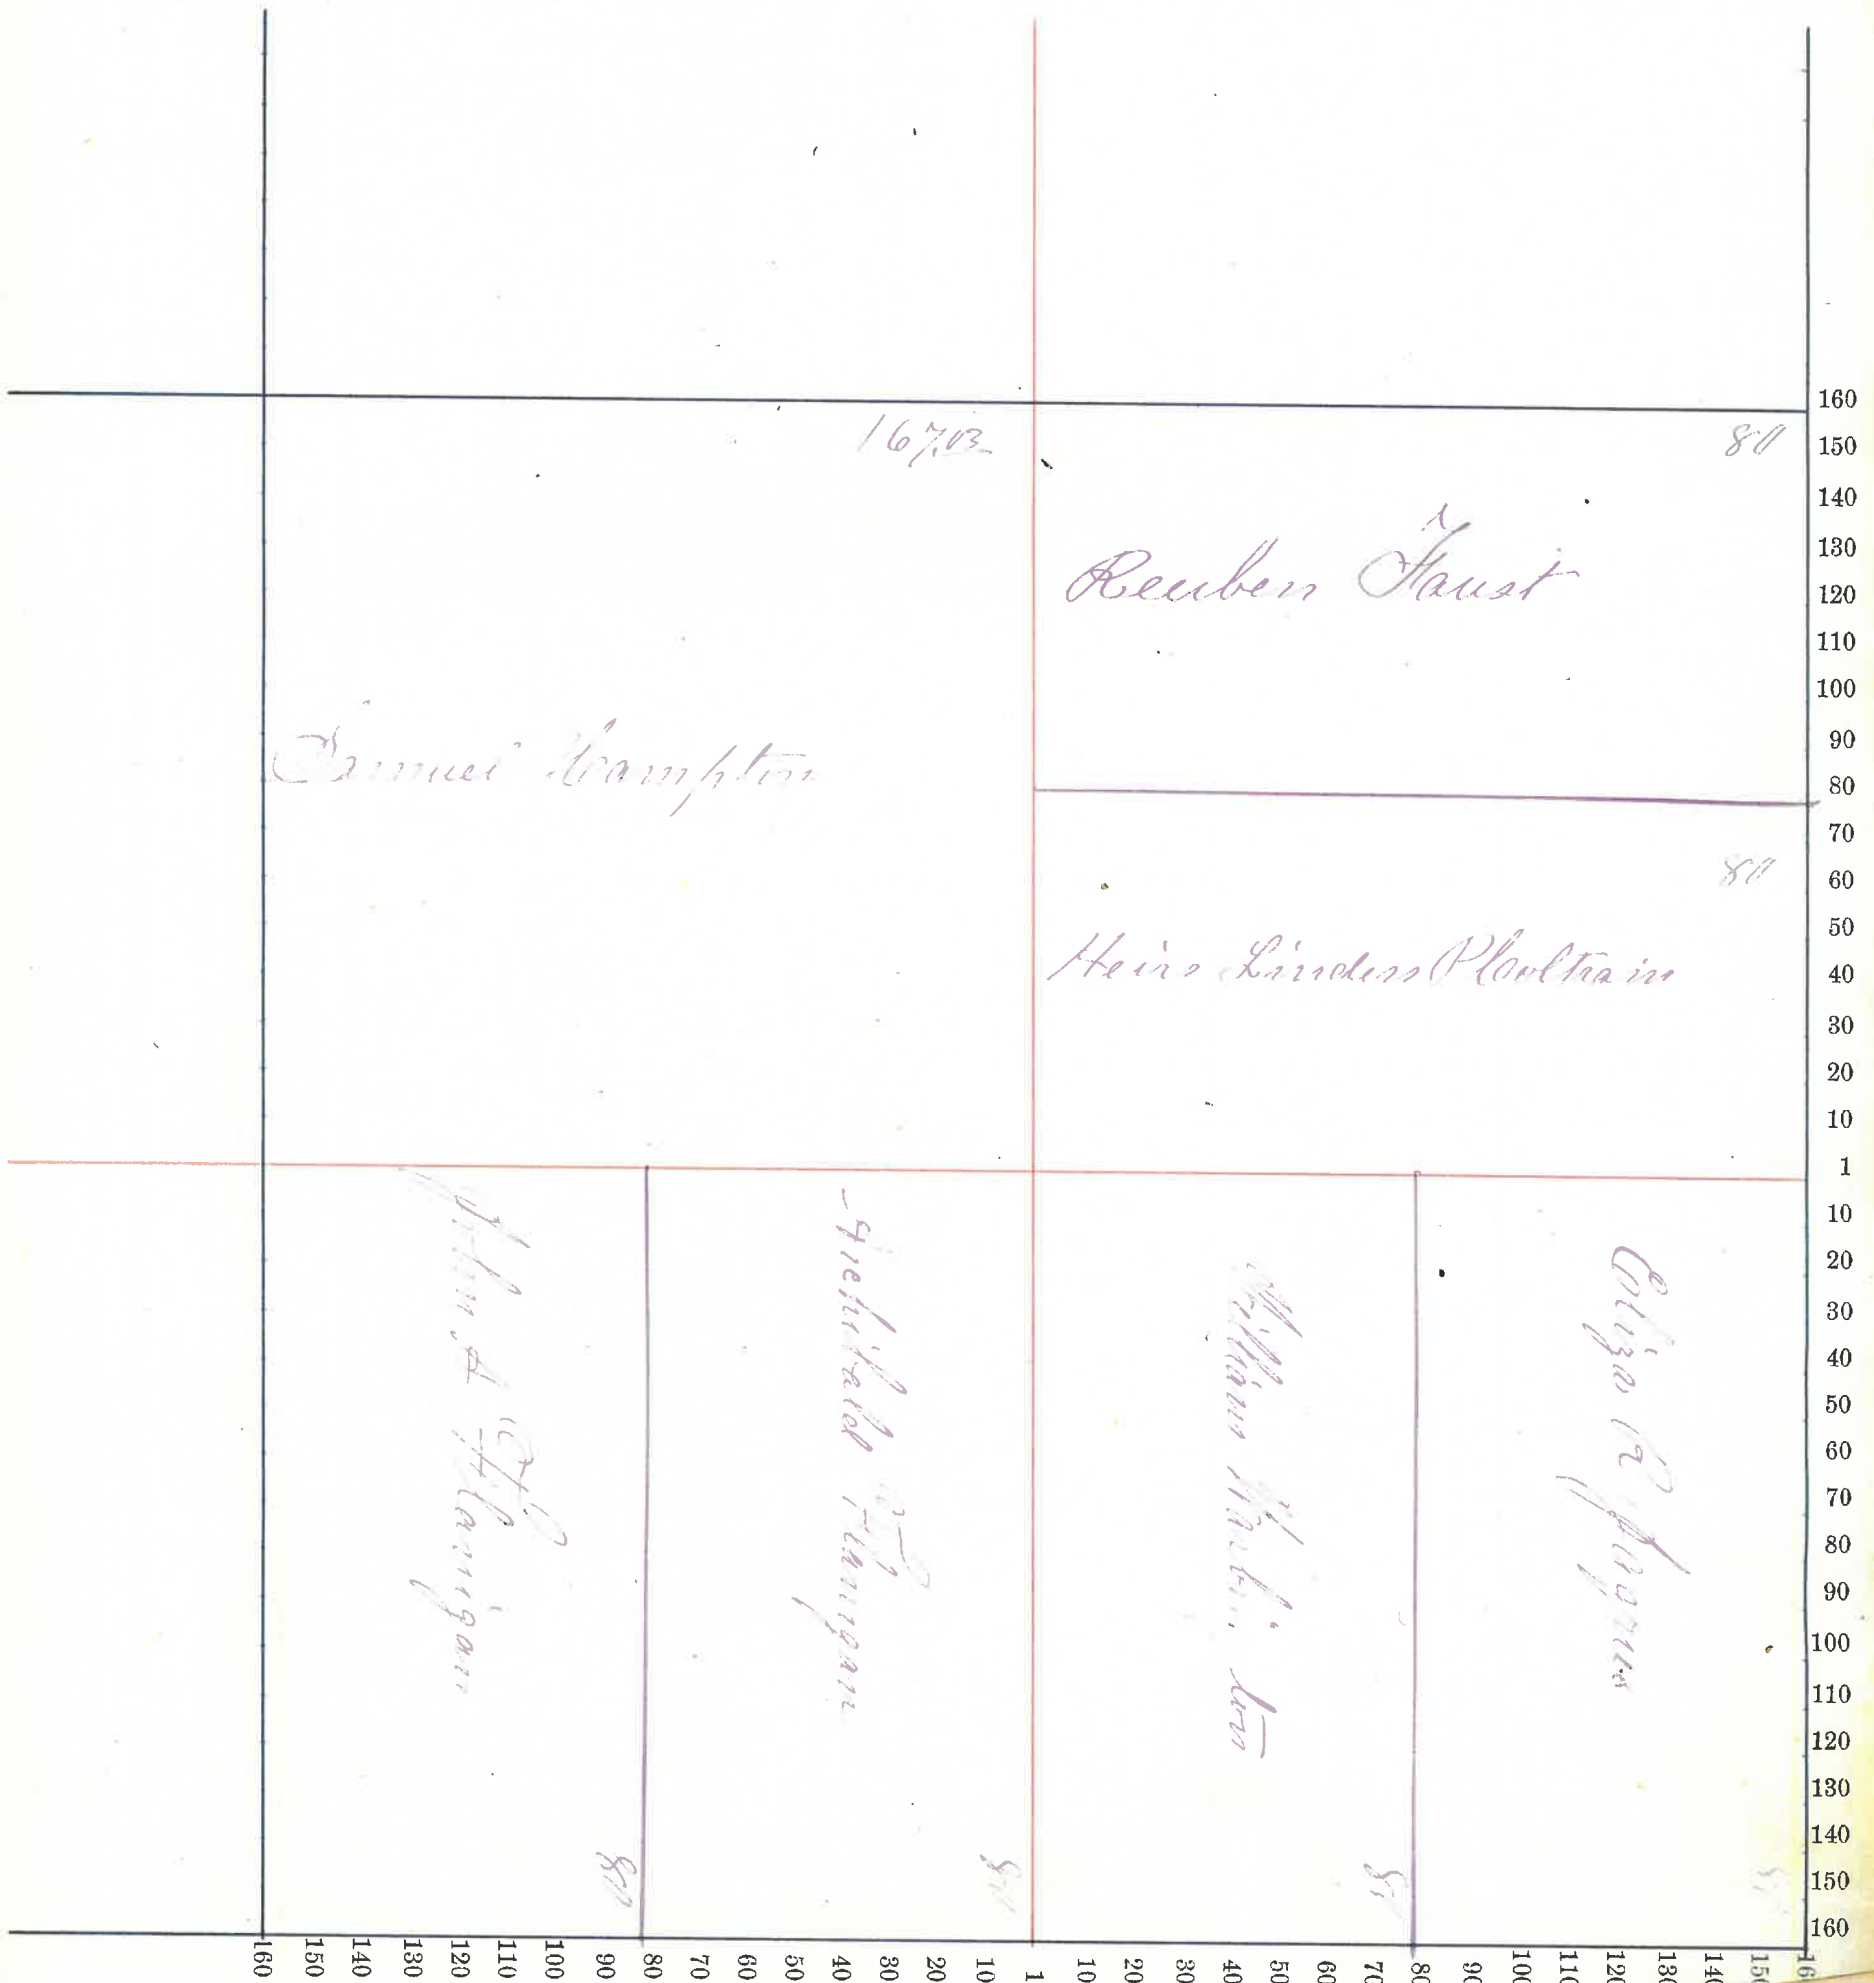 167.03
80
Reuben Faust
Samuel Hampton
80
Heirs Linders
John A Flanigan
Archibald Flanigan
William
Eliza R
80
80
80
80
160
150
140
130
120
110
100
90
80
70
60
50
40
30
20
10
1
10
20
30
40
50
60
70
80
90
100
110
120
130
140
150
160
160 150 140 130 120 110 100 90 80 70 60 50 40 30 20 10 1 10 20 30 40 50 60 70 80 90 100 110 120 130 140 150 16